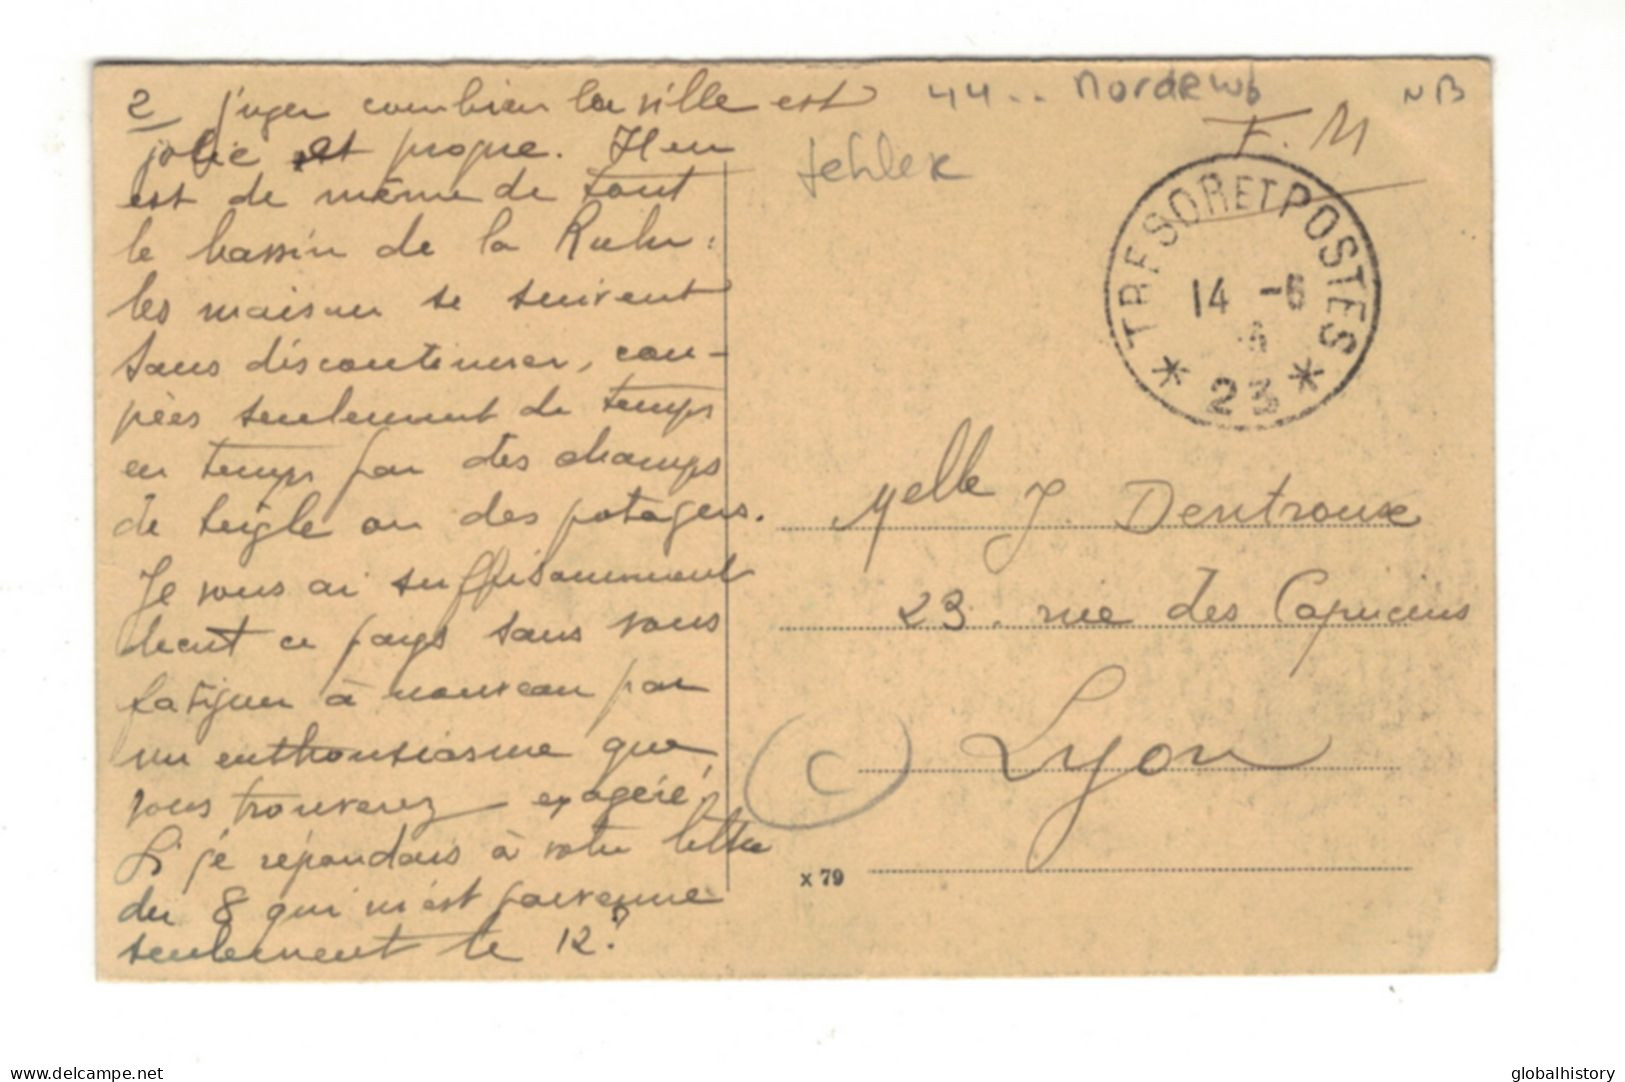 2 juger combien la ville est
jolie et propre. Il en
est de même de tout
le bassin de la Ruhr :
les maison se suivent
sans discontinuer, cou-
pées seulement de temps
en temps par des champs
de seigle ou des potagers.
Je vous ai suffisamment
décrit ce pays sans vous
fatiguer à nouveau par
un enthousiasme que
vous trouverez exagéré,
Si je répondais à votre lettre
du 8 qui m'est parvenue
seulement le 12 ?
44..
NB
F. M
TRESOR ET POSTES
14 -6
* 23 *
Melle J. Dentroux
23. rue des Capucins
Lyon
C
x 79
delcampe.net
globalhistory